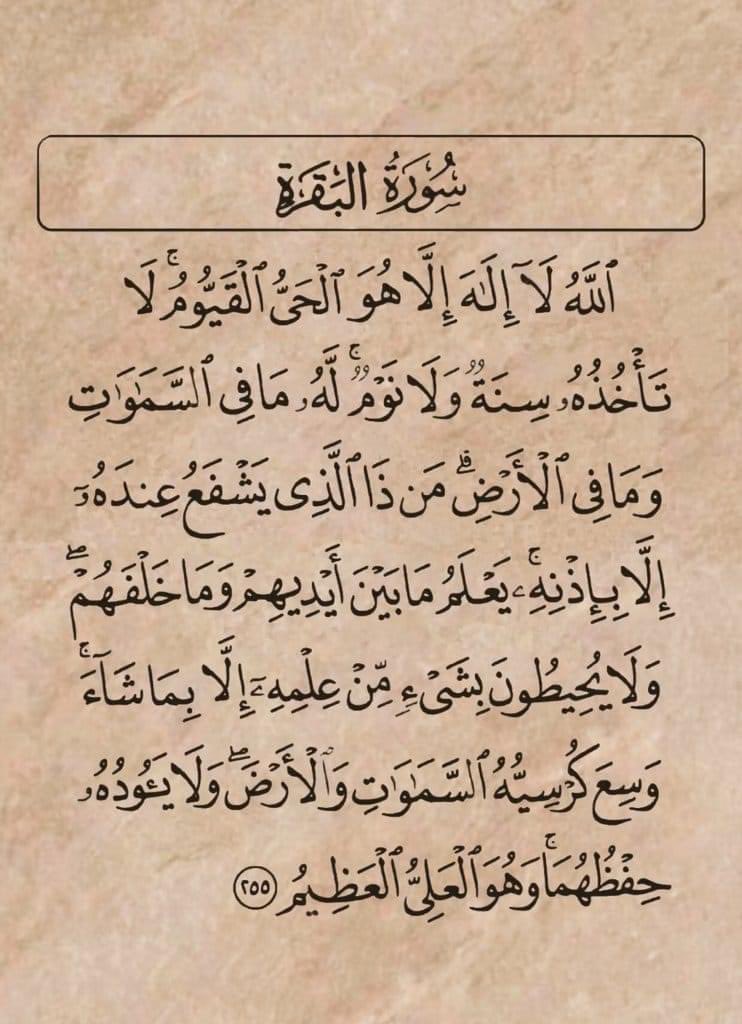 سُورَةُ البَقَرَةِ
ٱللَّهُ لَآ إِلَٰهَ إِلَّا هُوَ ٱلْحَىُّ ٱلْقَيُّومُ ۚ لَا
تَأْخُذُهُۥ سِنَةٌ وَلَا نَوْمٌ ۚ لَّهُۥ مَا فِى ٱلسَّمَٰوَٰتِ
وَمَا فِى ٱلْأَرْضِ ۗ مَن ذَا ٱلَّذِى يَشْفَعُ عِندَهُۥٓ
إِلَّا بِإِذْنِهِۦ ۚ يَعْلَمُ مَا بَيْنَ أَيْدِيهِمْ وَمَا خَلْفَهُمْ ۖ
وَلَا يُحِيطُونَ بِشَىْءٍ مِّنْ عِلْمِهِۦٓ إِلَّا بِمَا شَآءَ ۚ
وَسِعَ كُرْسِيُّهُ ٱلسَّمَٰوَٰتِ وَٱلْأَرْضَ ۖ وَلَا يَـُٔودُهُۥ
حِفْظُهُمَا ۚ وَهُوَ ٱلْعَلِىُّ ٱلْعَظِيمُ ٢٥٥